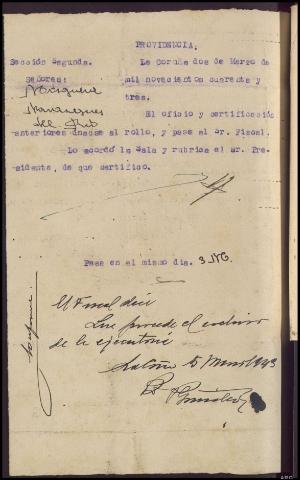 PROVIDENCIA.
Sección Segunda. La Coruña dos de Marzo de
Señores: mil novecientos cuarenta y
Mosquera tres.
El oficio y certificación
del Rio
anteriores únanse al rollo, y pase al Sr. Fiscal.
Lo acordó la Sala y rubrica el Sr. Pre-
sidente, de que certifico.
Pasa en el mismo dia.
El Fiscal dice
Que procede el archivo
de la ejecutoria
Coruña 5 Marzo 1943